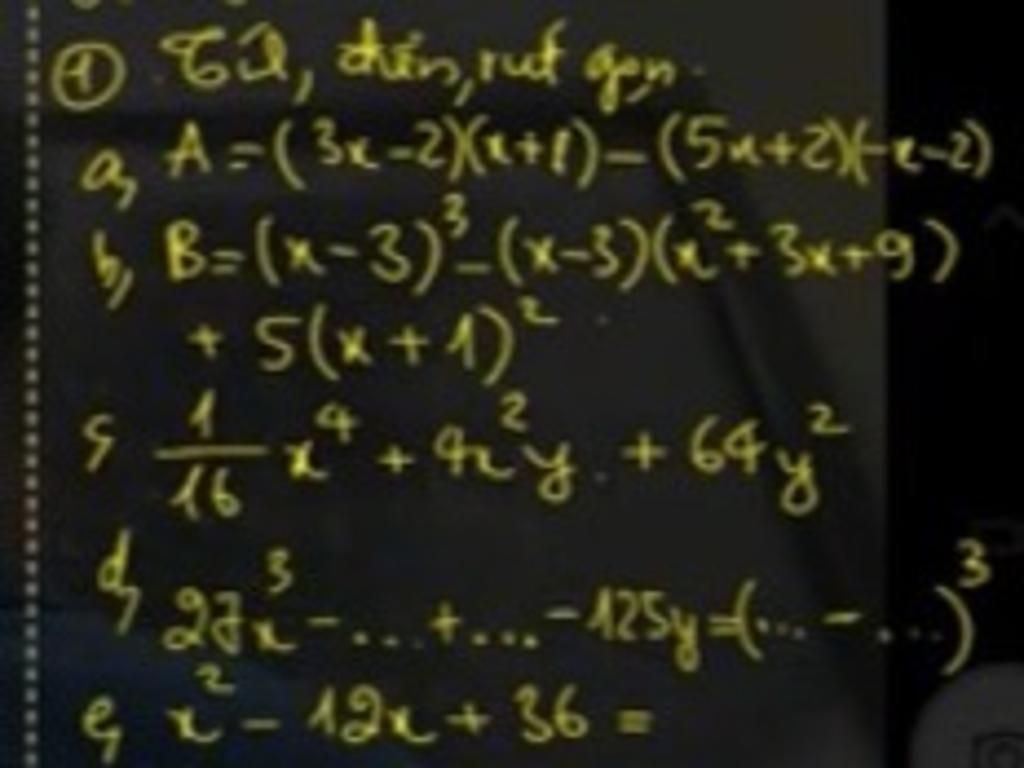 ① Tìm, điền, rút gọn.
a, A = (3x - 2)(x + 1) - (5x + 2)(-x - 2)
b, B = (x - 3)³ - (x - 3)(x² + 3x + 9)
+ 5(x + 1)²
c, 1/16 x⁴ + 4x²y + 64y²
d, 27x³ - ... + ... - 125y = (... - ...)³
e, x² - 12x + 36 =